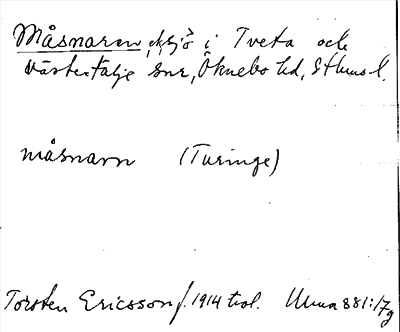 Måsnaren, sjö i Tveta och
Västertälje snr, Öknebo hd, Sthms l.
måsnarn (Turinge)
Torsten Ericsson f. 1914 trol. Uma 881:17g